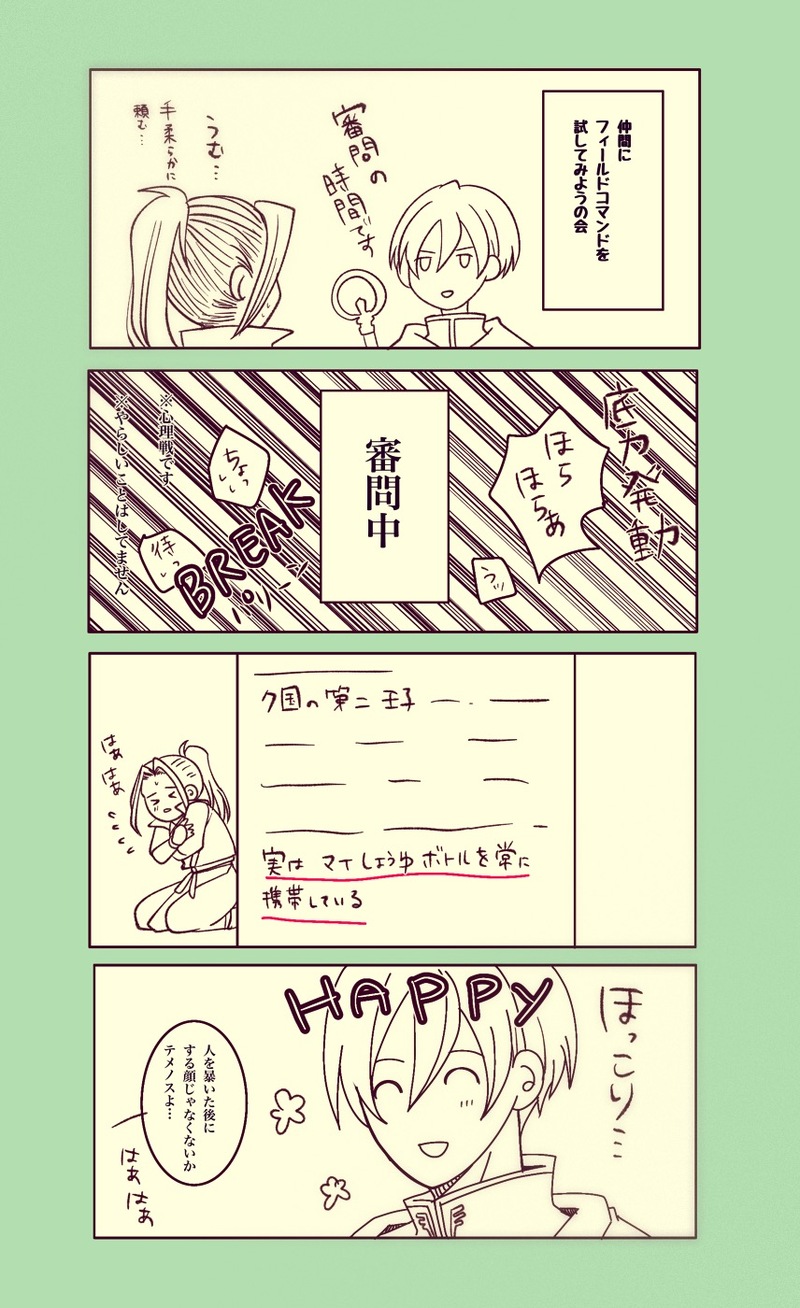 仲間に
フィールドコマンドを
試してみようの会
審問の
時間です
うむ…
手柔らかに
頼む…
底力発動
ほら
ほらぁ
うッ
審問中
ちょっ
待っ
BREAK
パリーン
※心理戦です
※やらしいことはしてません
ク国の第二王子
実はマイしょうゆボトルを常に
携帯している
はぁ
はぁ
ほっこり…
HAPPY
人を暴いた後に
する顔じゃなくないか
テメノスよ…
はぁはぁ